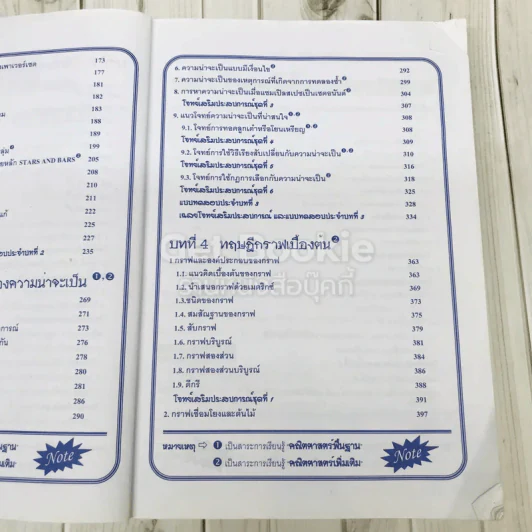 แพาเวอร์เซต 173
177
181
182
188
189
199
STARS AND BARS❷ 205
208
210
211
222
225
227
2 235
องความน่าจะเป็น ❶,❷
269
271
273
276
278
280
281
286
290
Note
6. ความน่าจะเป็นแบบมีเงื่อนไข❷ 292
7. ความน่าจะเป็นของเหตุการณ์ที่เกิดจากการทดลองซ้ำ❷ 299
8. การหาความน่าจะเป็นเมื่อแซมเปิลสเปซเป็นเซตอนันต์❷ 304
โจทย์เสริมประสบการณ์ชุดที่ 3 307
9. แนวโจทย์ความน่าจะเป็นที่น่าสนใจ❶,❷ 308
9.1. โจทย์การทอดลูกเต๋าหรือโยนเหรียญ❶,❷ 308
โจทย์เสริมประสบการณ์ชุดที่ 4 309
9.2. โจทย์การใช้วิธีเรียงสับเปลี่ยนกับความน่าจะเป็น❶,❷ 310
โจทย์เสริมประสบการณ์ชุดที่ 5 316
9.3. โจทย์การใช้กฎการเลือกกับความน่าจะเป็น❷ 318
โจทย์เสริมประสบการณ์ชุดที่ 6 325
แบบทดสอบประจำบทที่ 3 328
เฉลยโจทย์เสริมประสบการณ์ และแบบทดสอบประจำบทที่ 3 334
บทที่ 4 ทฤษฎีกราฟเบื้องต้น❷
Get Bookie
ร้านหนังสือบุ๊คกี้
1. กราฟและองค์ประกอบของกราฟ 363
1.1. แนวคิดเบื้องต้นของกราฟ 363
1.2. นำเสนอกราฟด้วยเมตริกซ์ 369
1.3. ชนิดของกราฟ 373
1.4. สมสัณฐานของกราฟ 375
1.5. สับกราฟ 379
1.6. กราฟบริบูรณ์ 381
1.7. กราฟสองส่วน 384
1.8. กราฟสองส่วนบริบูรณ์ 386
1.9. ดีกรี 388
โจทย์เสริมประสบการณ์ชุดที่ 1 391
2. กราฟเชื่อมโยงและต้นไม้ 397
หมายเหตุ ⇨ ❶ เป็นสาระการเรียนรู้ คณิตศาสตร์พื้นฐาน
❷ เป็นสาระการเรียนรู้ คณิตศาสตร์เพิ่มเติม
Note